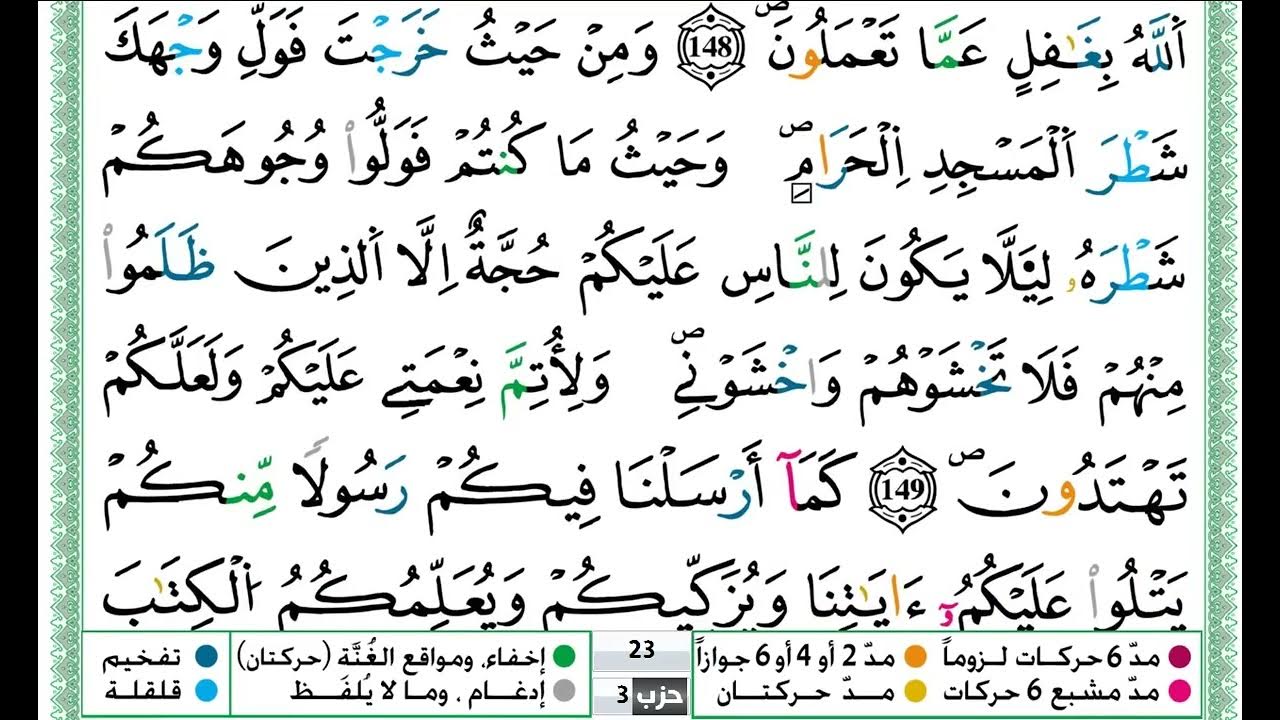 اَ۬للَّهُ بِغَٰفِلٍ عَمَّا تَعْمَلُونَۖ 148 وَمِنْ حَيْثُ خَرَجْتَ فَوَلِّ وَجْهَكَ
شَطْرَ اَ۬لْمَسْجِدِ اِ۬لْحَرَامِۖ وَحَيْثُ مَا كُنتُمْ فَوَلُّواْ وُجُوهَكُمْ
شَطْرَهُۥ لِيَ۬لَّا يَكُونَ لِلنَّاسِ عَلَيْكُمْ حُجَّةٌ اِلَّا اَ۬لذِينَ ظَلَمُواْ
مِنْهُمْ فَلَا تَخْشَوْهُمْ وَاخْشَوْنِےۖ وَلِأُتِمَّ نِعْمَتِے عَلَيْكُمْ وَلَعَلَّكُمْ
تَهْتَدُونَۖ 149 كَمَآ أَرْسَلْنَا فِيكُمْ رَسُولاً مِّنكُمْ
يَتْلُواْ عَلَيْكُمُۥٓ ءَايَٰتِنَا وَيُزَكِّيكُمْ وَيُعَلِّمُكُمُ اُ۬لْكِتَٰبَ
مدّ 6 حركات لـزوماً مدّ 2 أو 4 أو 6 جوازاً 23 إخفاء، ومواقع الغُنَّة (حركتان) تفخيم
مدّ مشبع 6 حركات مدّ حركتان حزب 3 إدغام ، وما لا يُلفَـظ قلقلة